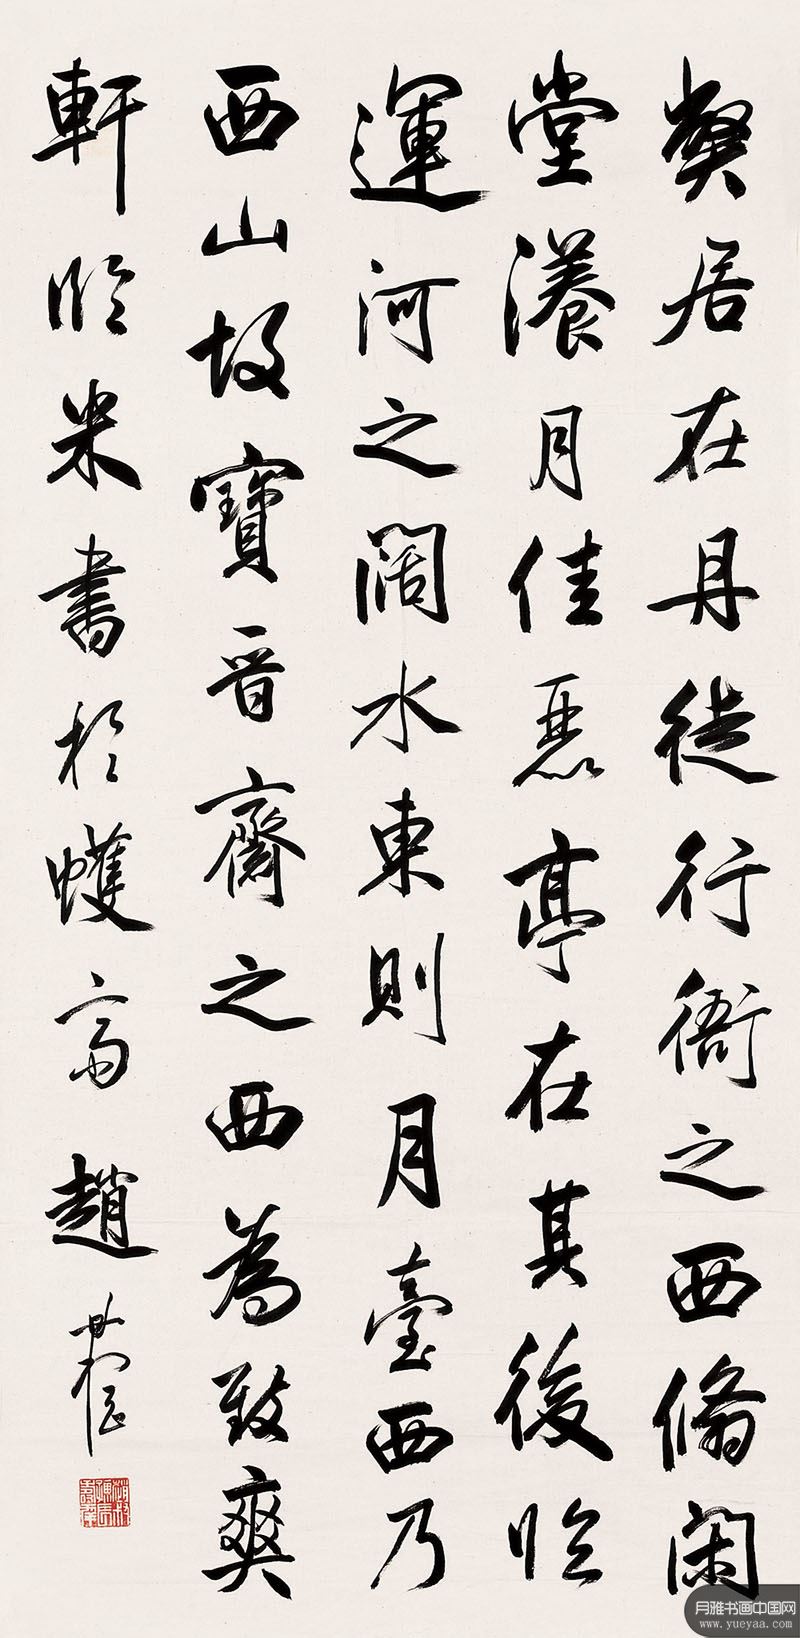 獘居在丹徒行衙之西翛閑
堂瀁月佳麗亭在其後臨
運河之闊水東則月臺西乃
西山故寶晉齋之西為致爽
軒臨米書於蠖齋趙時棡
月雅书画中国网
www.yueyaa.com